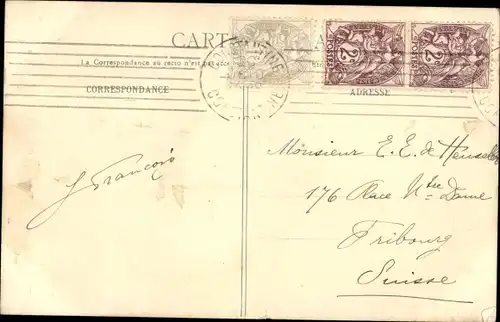 CART
La Correspondance au recto n'est pas
CORRESPONDANCE
ADRESSE
2c
POSTES
2c
POSTES
J François
Monsieur E. E. d'
176 Place Nᵗʳᵉ Dame
Fribourg
Suisse